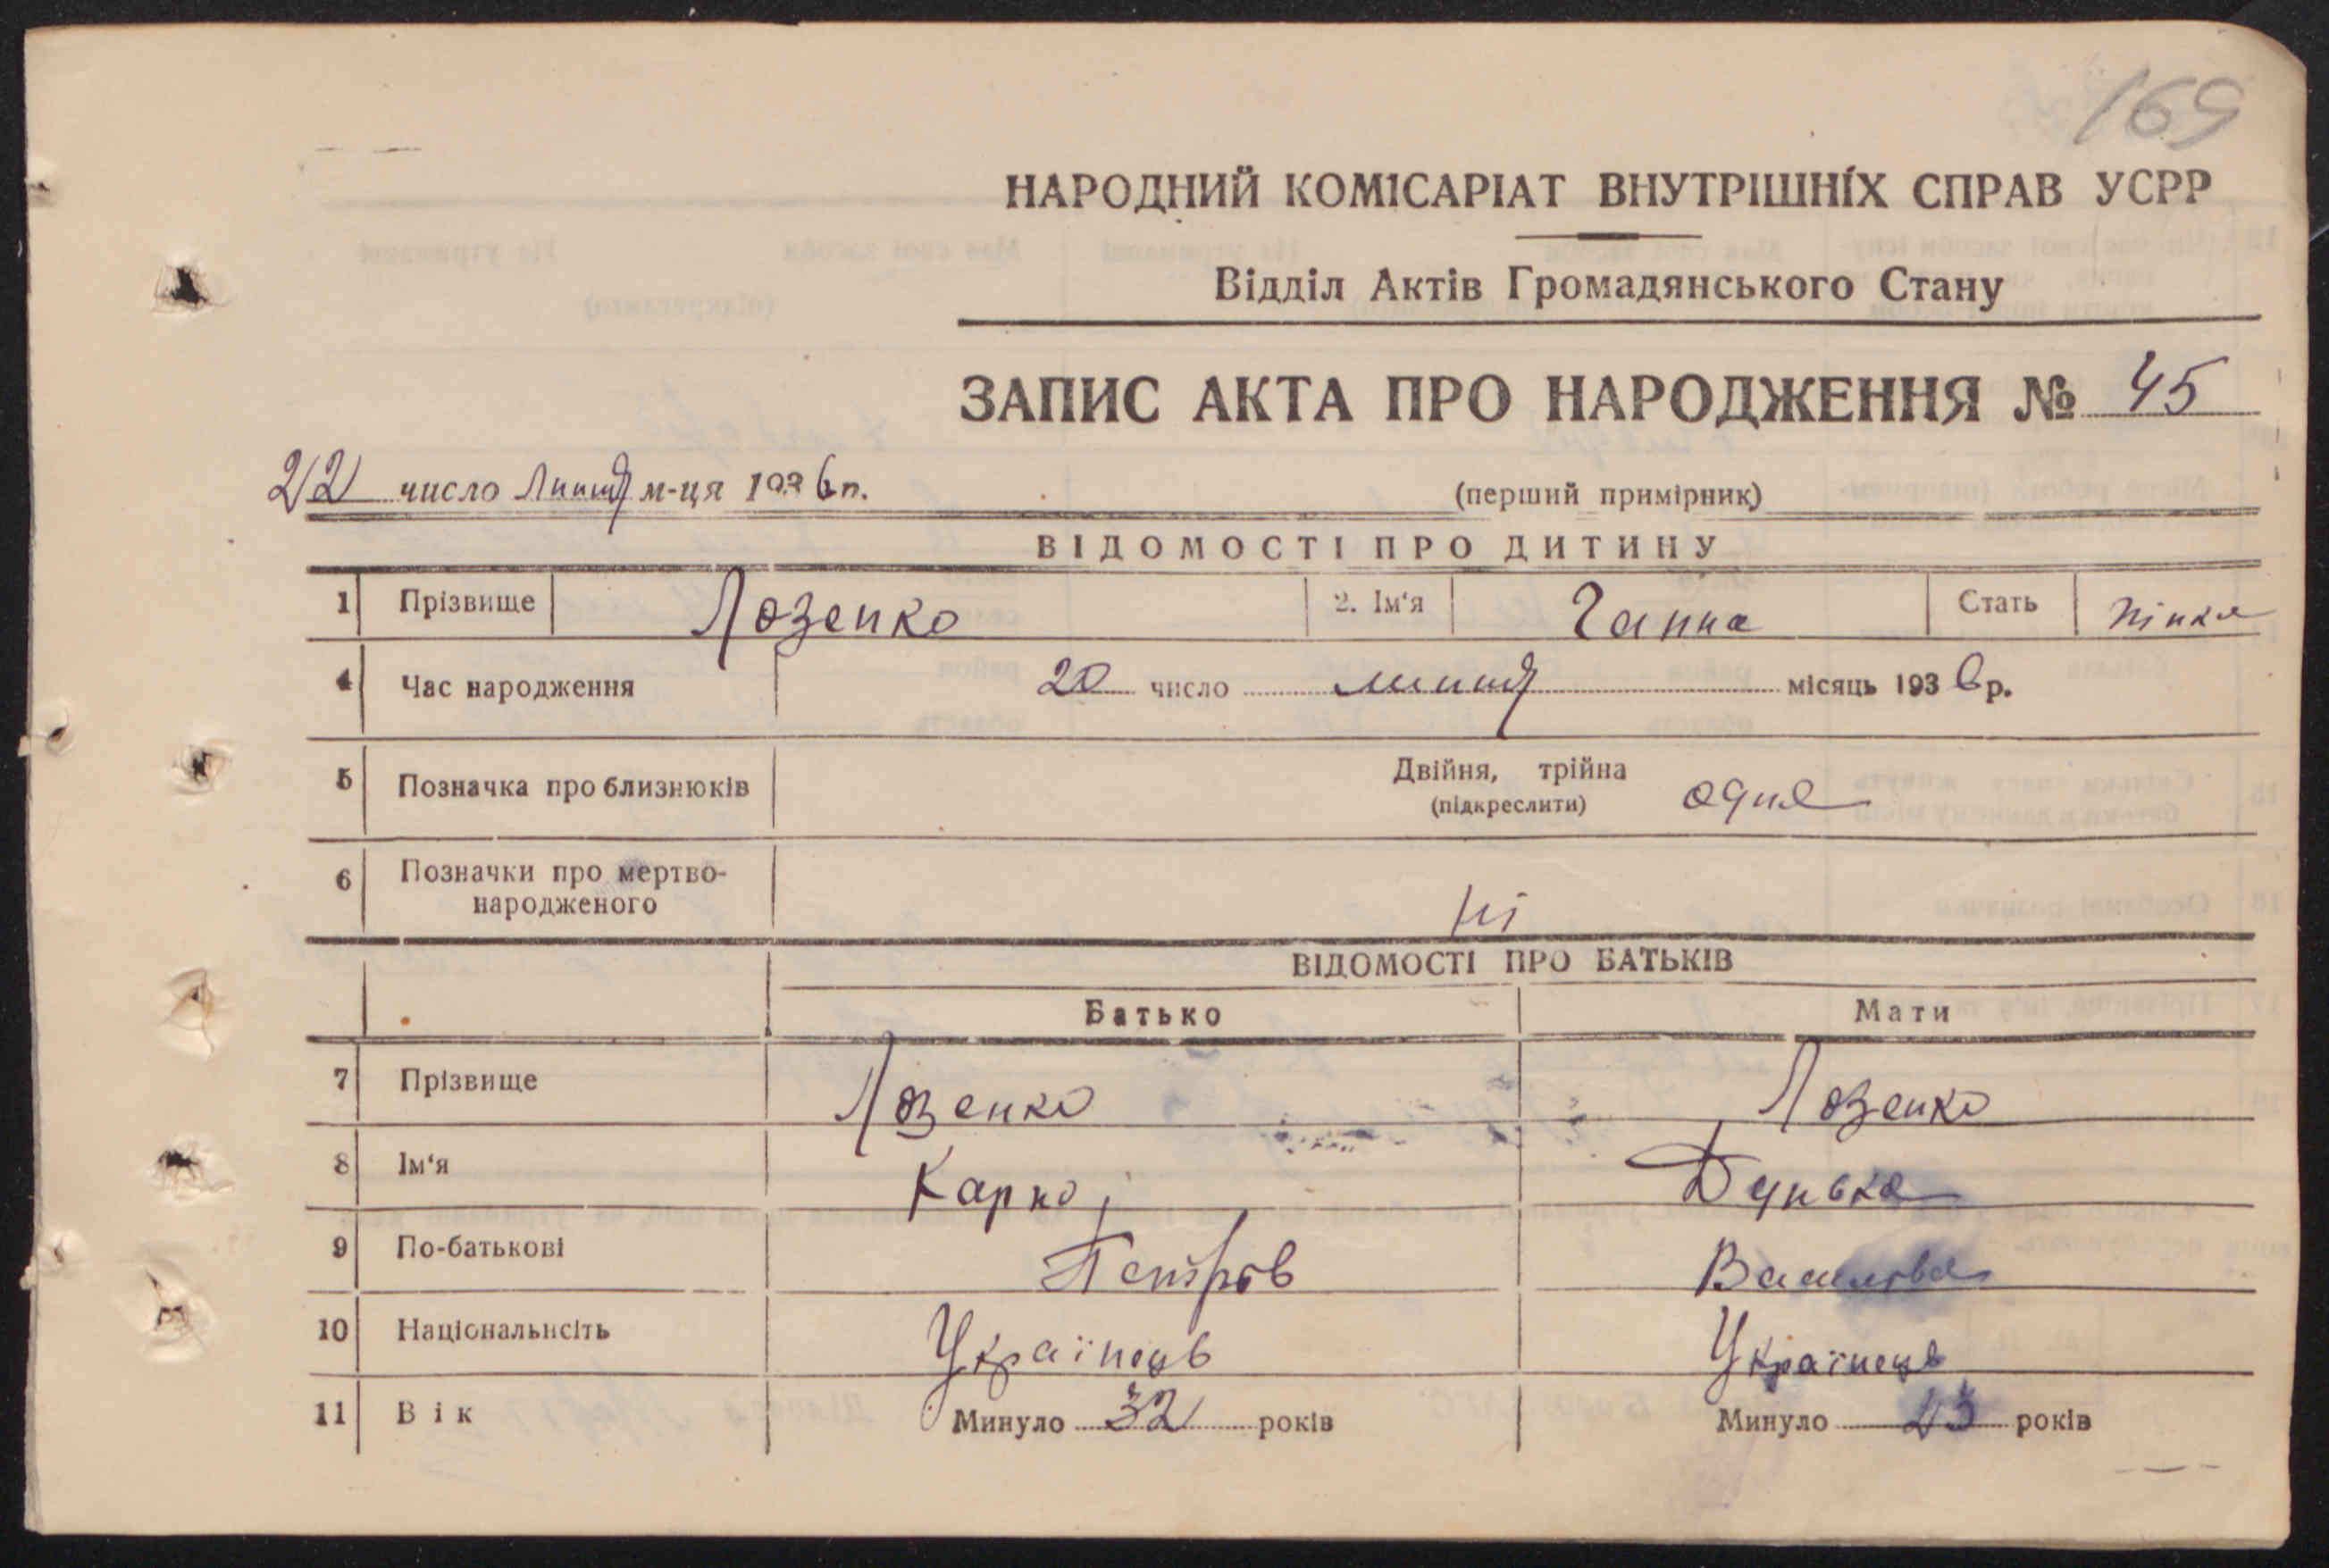 169
НАРОДНИЙ КОМІСАРІАТ ВНУТРІШНІХ СПРАВ УСРР
Відділ Актів Громадянського Стану
ЗАПИС АКТА ПРО НАРОДЖЕННЯ № 45
22 число Липня м-ця 1936 р.
(перший примірник)
ВІДОМОСТІ ПРО ДИТИНУ
1 Прізвище Лозенко 2. Ім'я Ганна Стать жінка
4 Час народження 20 число липня місяць 1936 р.
5 Позначка про близнюків Двійня, трійна
(підкреслити) одна
6 Позначки про мертво-
народженого ні
ВІДОМОСТІ ПРО БАТЬКІВ
Батько Мати
7 Прізвище Лозенко Лозенко
8 Ім'я Карпо Дунька
9 По-батькові Петров Василова
10 Національнсіть Українець Українець
11 Вік Минуло 32 років Минуло 23 років